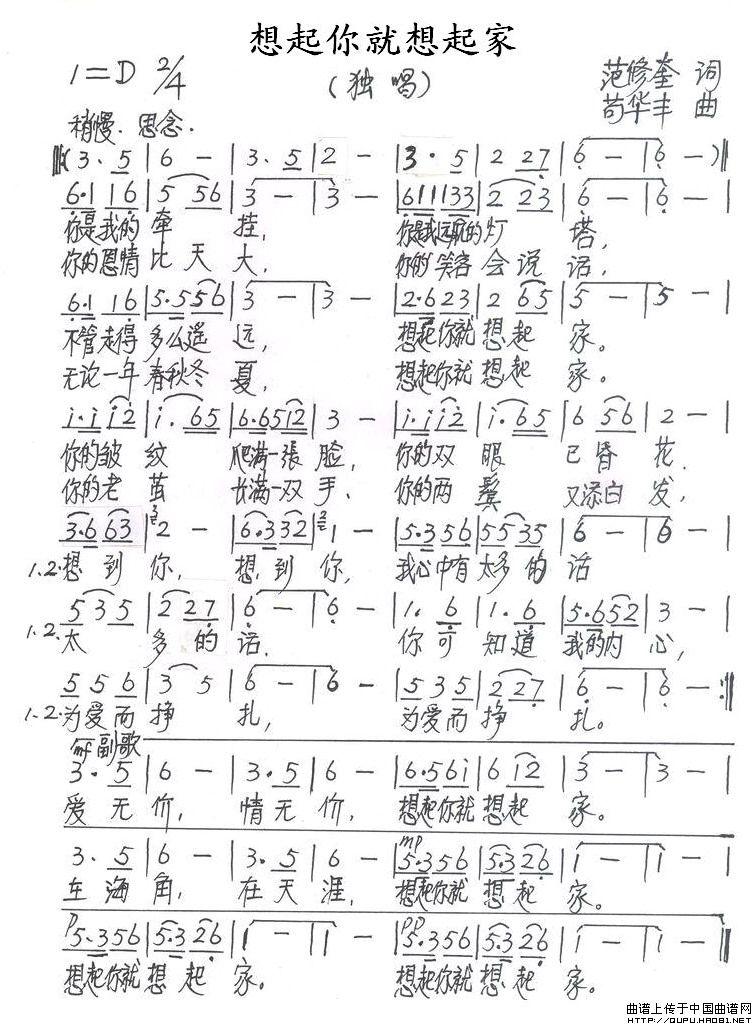 想起你就想起家
1=D 2/4
(独唱)
范修奎 词
苟华丰 曲
稍慢.思念.
‖:(3·5|6 -|3·5|2 -|3·5|2 27|6 -|6 -)‖
6·1 16|5 56|3 -|3 -|611133|2 23|6 -|6 -|
你是我的牵 挂, 你是我远航的灯 塔,
你的恩情比天大, 你的笑容会说话,
6·1 16|5·556|3 -|3 -|2·623|2 65|5 -|5 -|
不管走得多么遥远, 想起你就想起 家。
无论一年春秋冬夏, 想起你就想起 家。
i·i i2|i·65|6·6512|3 -|i·i i2|i·65|6 56|2 -|
你的皱纹 爬满一张脸, 你的双眼 已昏花.
你的老茧 长满一双手、 你的两鬓 又添白发,
3·6 63|2 -|6·332|1 -|5·356|5535|6 -|6 -|
1.2.想到你, 想到你, 我心中有太多的话
5 3 5|2 27|6 -|6 -|1·6|1·6|5·652|3 -|
1.2.太 多的话. 你可知道我的内心,
5 5 6|3 5|6 -|6 -|5 3 5|2 27|6 -|6 -:‖
1.2.为爱而挣 扎, 为爱而挣 扎。
mf副歌
3·5|6 -|3·5|6 -|6·56i|6 i2|3 -|3 -|
爱无价, 情无价, 想起你就想起 家。
mp
3·5|6 -|3·5|6 -|5·356|5·326|1 -|1 -|
在海角, 在天涯, 想起你就想起 家。
p 5·356|5·3 26|1 -|1 -|pp 5·356|5·3 26|1 -|1 -‖
想起你就想起 家。 想起你就想起 家。
曲谱上传于中国曲谱网
HTTP://QUPU.HAO81.NET